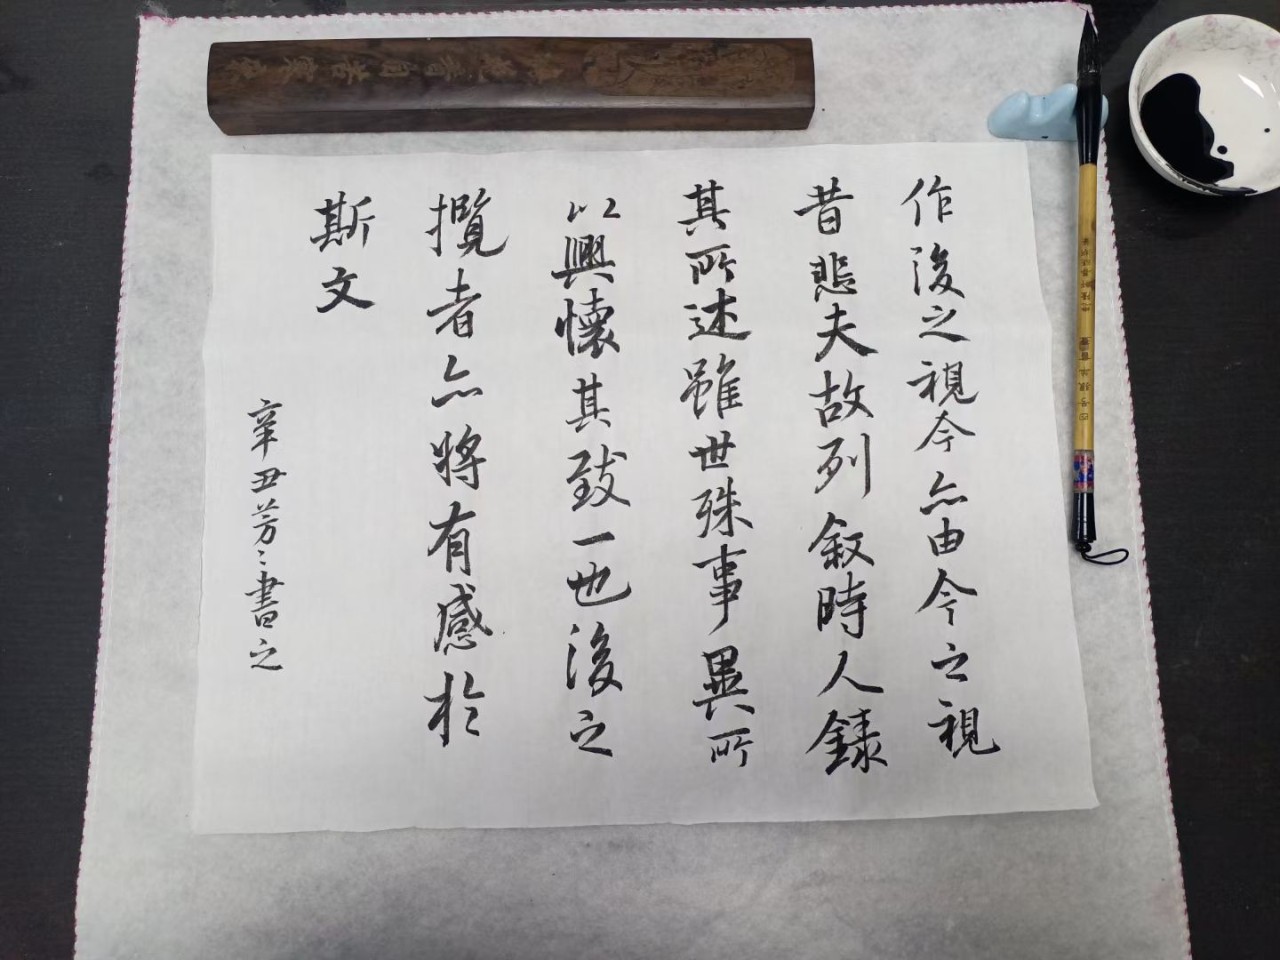 作後之視今亦由今之視
昔悲夫故列叙時人錄
其所述雖世殊事異所
以興懷其致一也後之
攬者亦將有感於
斯文
辛丑芳〻書之